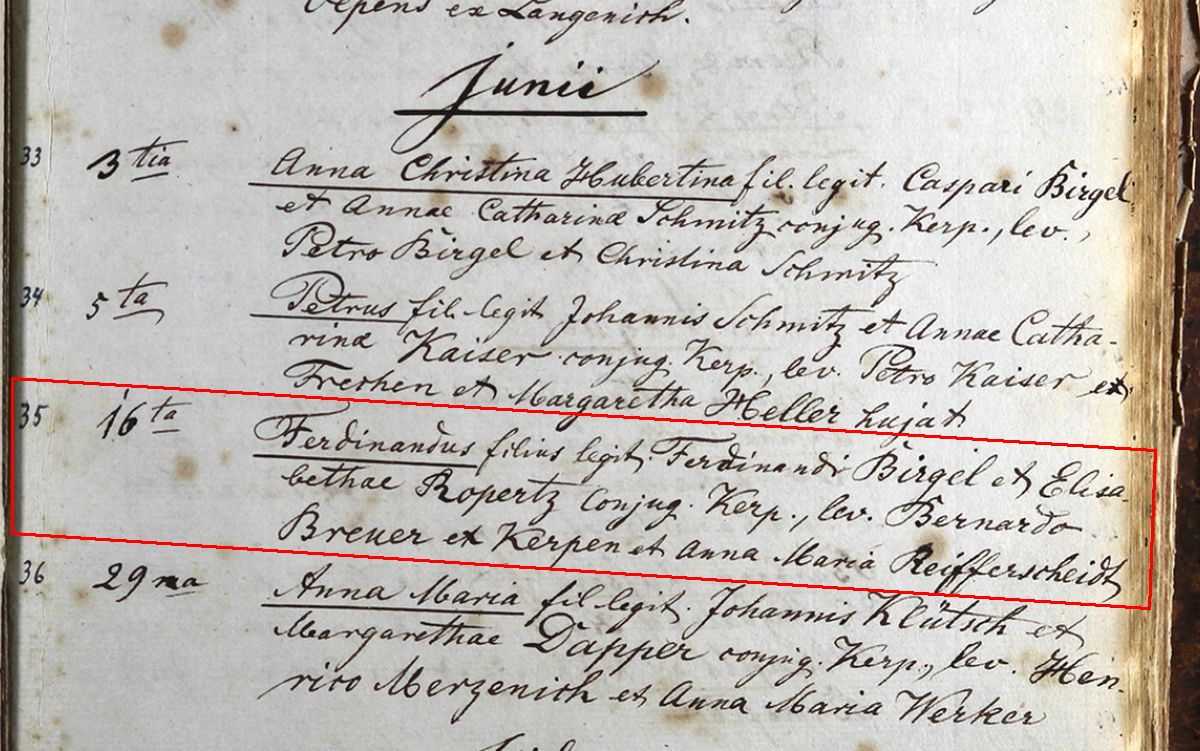 Vepens ex Langenich.
Junii
33 3 tia Anna Christina Hubertina fil. legit. Caspari Birgel
et Annae Catharinæ Schmitz conjug. Kerp., lev.,
Petro Birgel et Christina Schmitz
34 5 ta Petrus fil. legit Johannis Schmitz et Annae Catha-
rinæ Kaiser conjug. Kerp., lev. Petro Kaiser ex
Frechen et Margaretha Heller hujat
35 16 ta Ferdinandus filius legit. Ferdinandi Birgel et Elisa-
bethae Ropertz conjug. Kerp., lev. Bernardo
Breuer ex Kerpen et Anna Maria Reifferscheidt
36 29 na Anna Maria fil. legit. Johannis Klütsch et
Margarethae Dapper conjug. Kerp., lev. Hen-
rico Merzenich et Anna Maria Werker